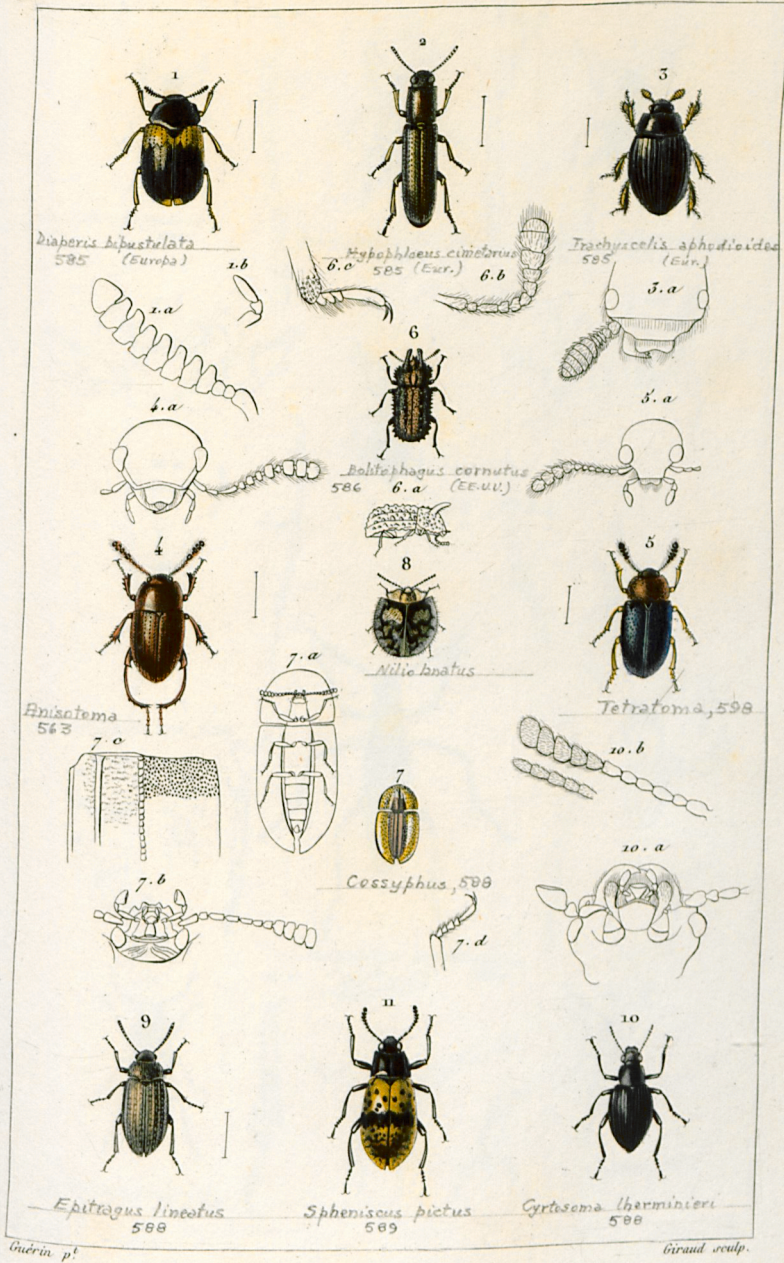 1
2
3
Diaperis bipustulata
585 (Europa)
Hypophlaeus cimetarius
585 (Eur.)
Trachyscelis aphodioides
585 (Eur.)
1.a
1.b
6.c
6.b
3.a
6
4.a
5.a
Bolitophagus cornutus
586 (EE.U.U.)
6.a
4
8
5
Nilio lanatus
7.a
Anisotoma
563
Tetratoma, 598
7.c
10.b
7
Cossyphus, 588
10.a
7.b
7.d
9
11
10
Epitragus lineatus
588
Spheniscus pictus
589
Cyrtosoma lherminieri
588
Guérin pt.
Giraud sculp.